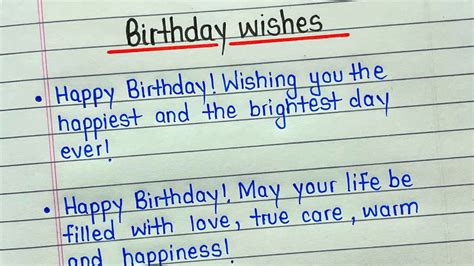 Birthday wishes
• Happy Birthday! Wishing you the
happiest and the brightest day
ever!
• Happy Birthday! May your life be
filled with love, true care, warm
and happiness!